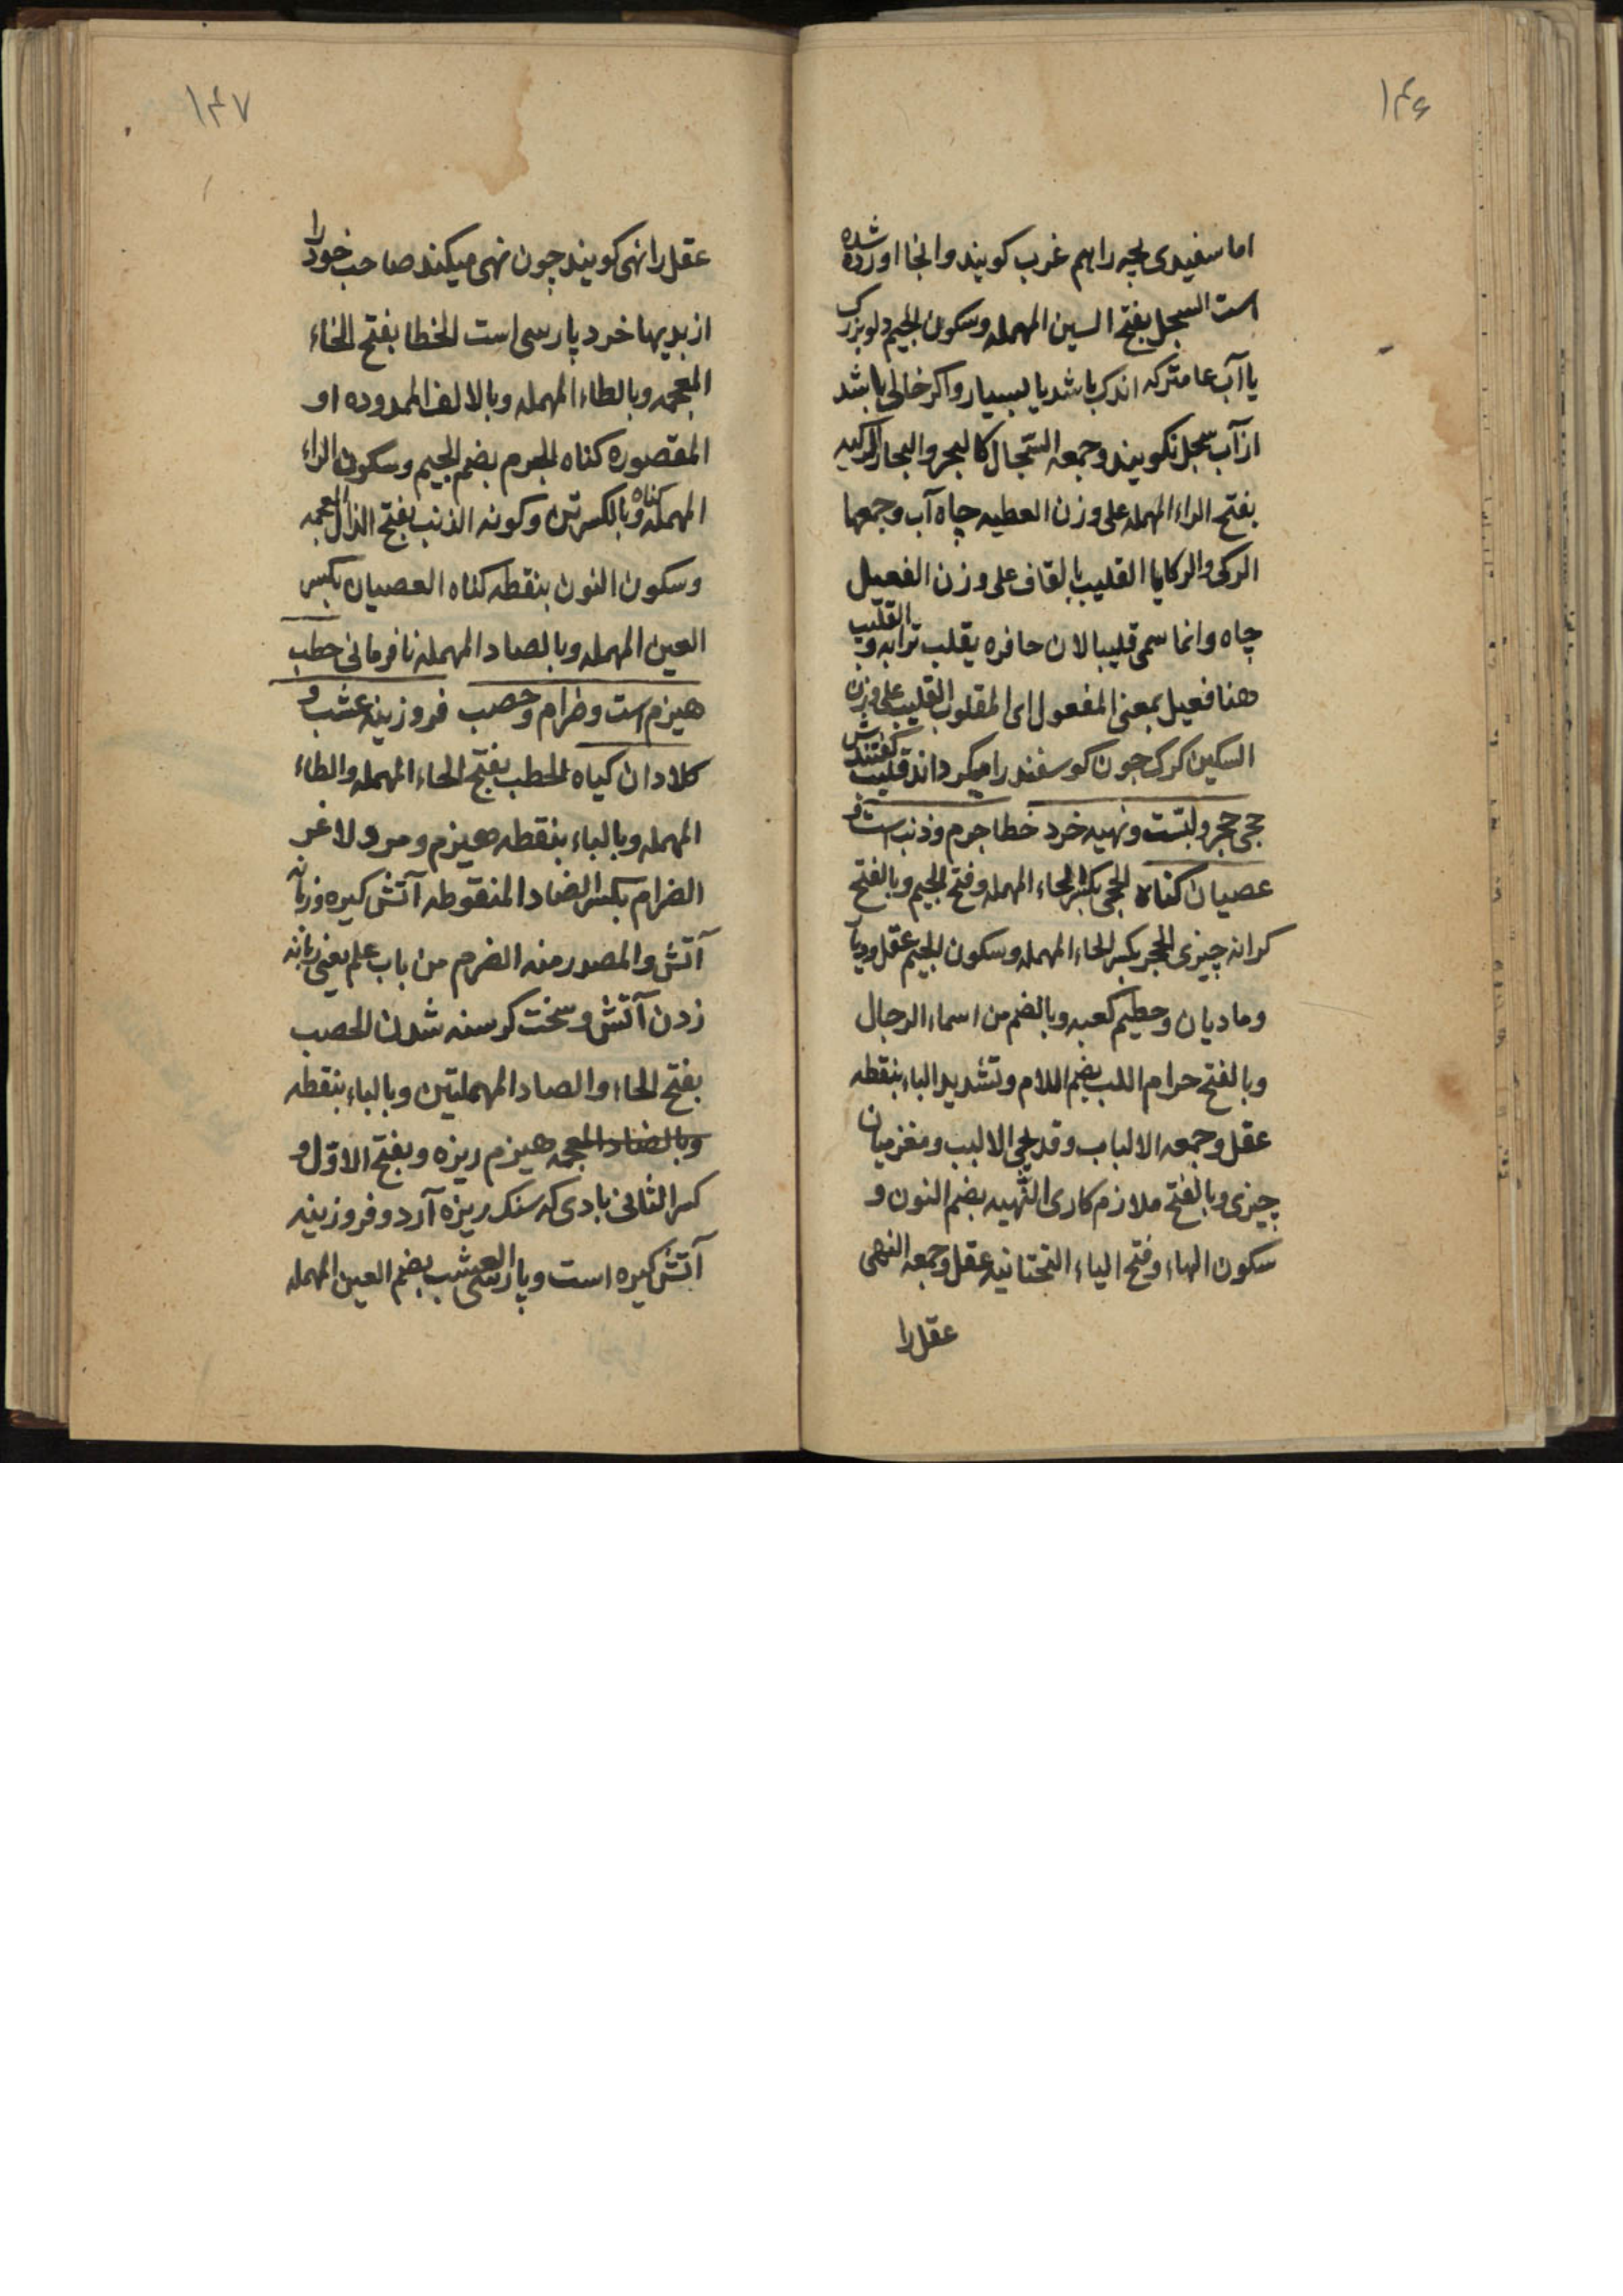 ۱۴۶
اما سفیدی لجیه را هم غرب کویند وانجا اورده شده
است السجل بفتح السین المهمله وسکون الجیم دلو بزرک
یا آب عامترکه اندک باشد یا لبسیار واکر خالی باشد
از آب سجل نکویند وجمعه السّجال کالبحر والبحار الرکیه
بفتح الراء المهمله علی وزن العطیه چاه آب وجمعها
الرکی والرکایا القلیب بالقاف علی وزن الفعیل
چاه وانما سمی قلیبا لان حافره یقلب ترابه والقلیب
هنا فعیل بمعنی المفعول ای المقلوب القلیب علی وزن
السکین کرک جون کوسفند را میکرداند قلیب کفتندش
حجی حجر ولبّست ونهیه خرد خطا جرم وذنب است و
عصیان کناه الحجی بکسر الحاء المهمله وفتح الجیم وبالفتح
کرانه چیزی الحجر بکسر الحاء المهمله وسکون الجیم عقل ودیار
ومادیان وحطیم کعبه وبالضم من اسماء الرجال
وبالفتح حرام اللب بضم اللام وتشدید الباء بنقطه
عقل وجمعه الالباب وقد یجی الالبب ومغز میان
چیزی وبالفتح ملازم کاری النّهیه بضم النون و
سکون الهاء وفتح الیاء التحتانیه عقل وجمعه النهی
عقل را
۱۴۷
عقل را نهی کویند چون نهی میکند صاحب خود را
از بدیها خرد پارسی است الخطا بفتح الخاء
المعجمه وبالطاء المهمله وبالالف الممدوده او
المقصوره کناه الجرم بضم الجیم وسکون الراء
المهمله کناه وبالکسر تن وکونه الذنب بفتح الذال المعجمه
وسکون النون بنقطه کناه العصیان بکسر
العین المهمله وبالصاد المهمله نافرمانی حطب
هیزم است وضرام وحصب فروزینه عشب و
کلا دان کیاه الحطب بفتح الحاء المهمله والطاء
المهمله وبالباء بنقطه هیزم ومرد لاغر
الضرام بکسر الضاد المنقوطه آتش کیره وزبانه
آتش والمصدر منه الضرم من باب علم یعنی زبانه
زدن آتش وسخت کرسنه شدن الحصب
بفتح الحاء والصاد المهملتین وبالباء بنقطه
وبالضاد المعجمه هیزم ریزه وبفتح الاوّل و
کسر الثانی بادی که سنک ریزه آرد وفروزینه
آتش کیره است وپارسی العشب بضم العین المهمله